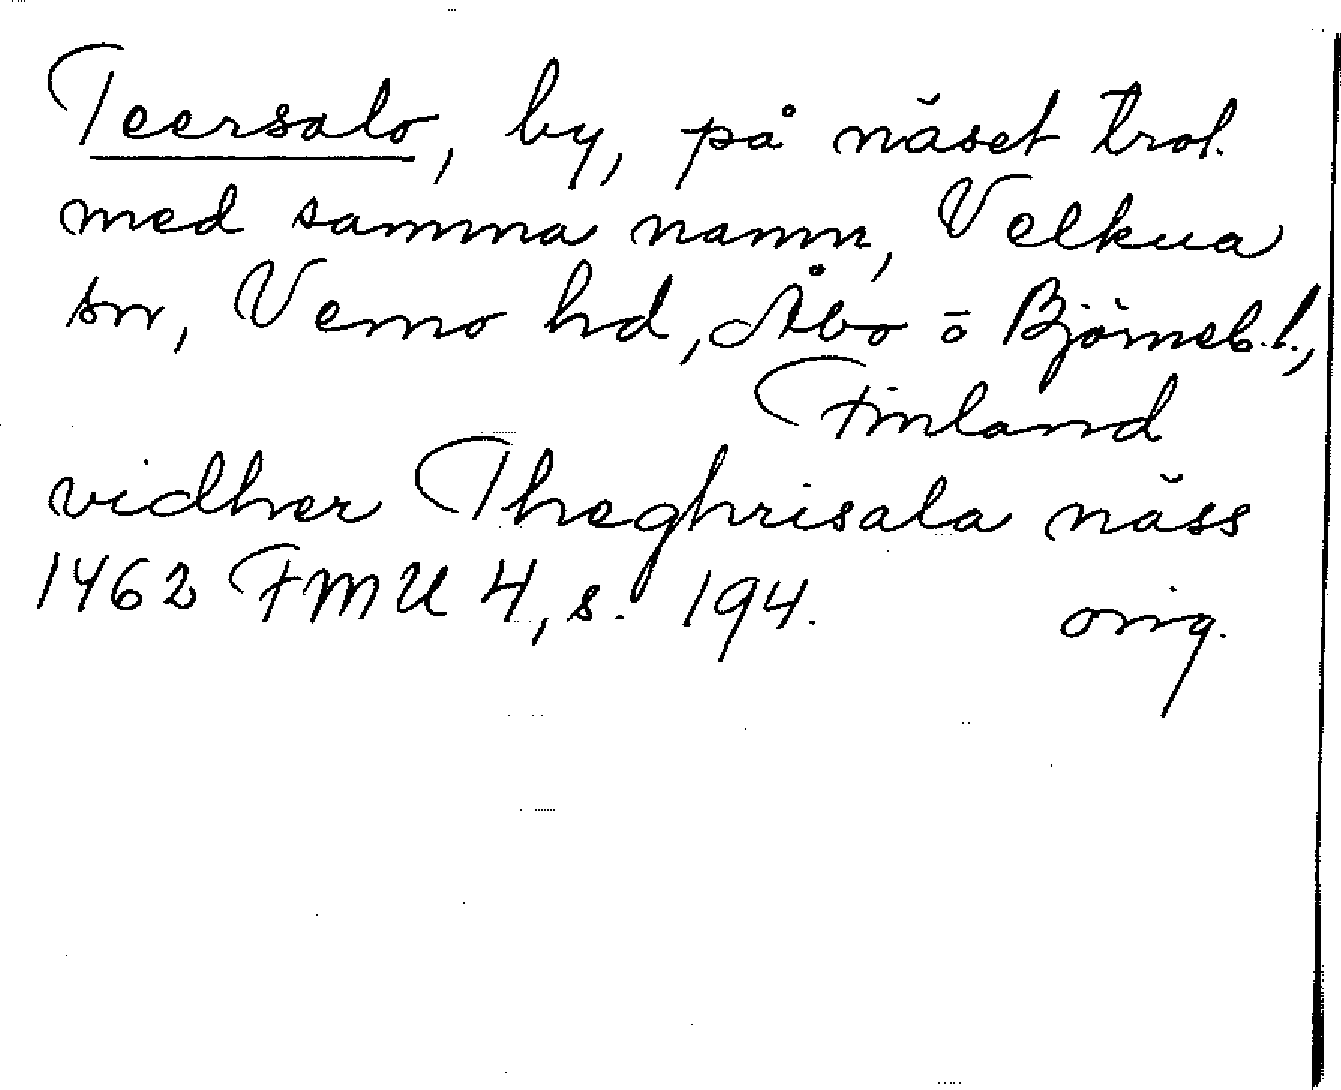 Teersalo, by, på näset trol.
med samma namn, Velkua
sn, Vemo hd, Åbo o Björneb. l.,
Finland
vidher Theghrisala näss
1462 FMU 4, s. 194. orig.